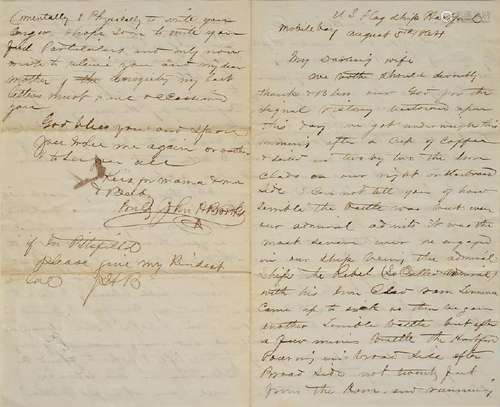 U S Flag Ship Hartford
Mobile bay August 5th 1864
My Darling wife
we should devoutly
thank & bless our God for the
signal victory bestowed upon
this day we got underweigh this
morning after a cup of coffee
& sailed in two by two the Iron
Clads on our right or Starboard
side I can not tell you of how
terrible the battle was but even
our admiral admits it was the
most severe ever he engaged
in our ship being the admirals
ship the Rebel (So Called admiral
with his Iron Clad ram Tennessee
Came up to us then we again
another terrible battle but after
a few minutes battle the Hartford
pouring in broad side after
Broad Side not twenty feet
from the and running
(mentally & Physically to write you
longer I hope soon to write you
full Particulars and only now
write to relieve you and my dear
mother, my last
letters must have
you
God bless you and spare
you & me again or rather
to see you all
Kiss for mama & one
& Bub
John H Brooks
if In Pittsfield
please give my Kindest
love JHB